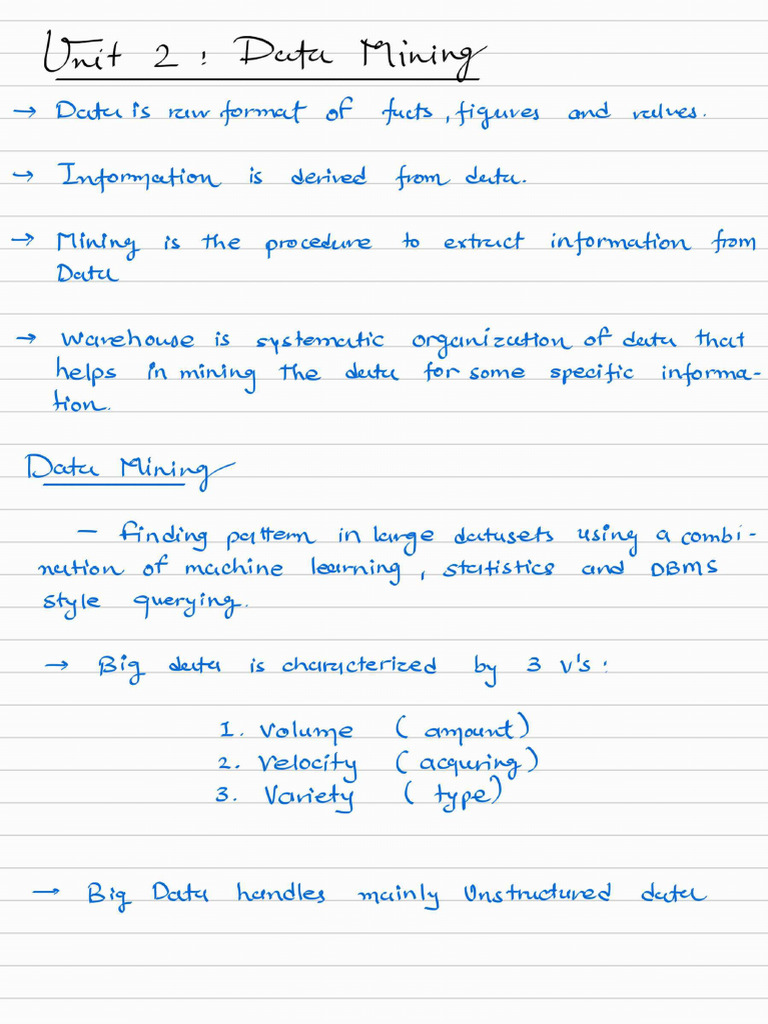 Unit 2 : Data Mining
→ Data is raw format of facts, figures and values.
→ Information is derived from data.
→ Mining is the procedure to extract information from
Data
→ Warehouse is systematic organization of data that
helps in mining the data for some specific informa-
tion.
Data Mining
- finding pattern in large datasets using a combi-
nation of machine learning, statistics and DBMS
style querying.
→ Big data is characterized by 3 v's :
1. Volume (amount)
2. Velocity (acquring)
3. Variety (type)
→ Big Data handles mainly Unstructured data